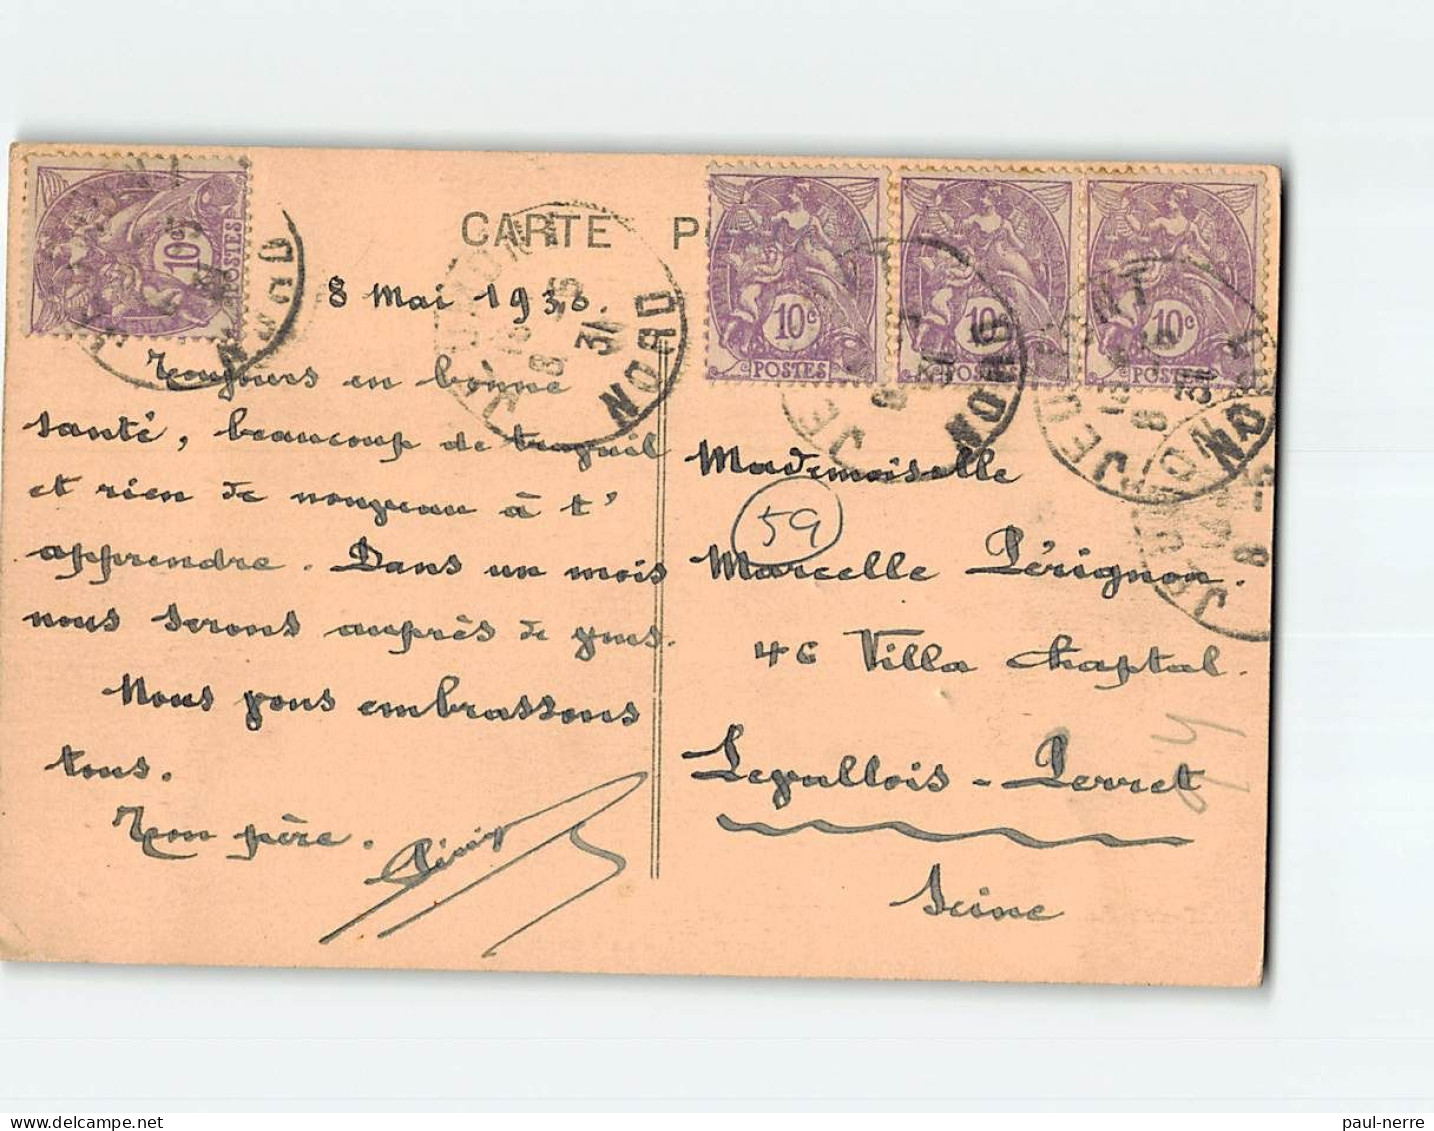 CARTE P
8 Mai 1938.
Toujours en bonne
santé, beaucoup de travail
et rien de nouveau à t'
apprendre. Dans un mois
nous serons auprès de vous.
Nous vous embrassons
tous.
Ton père.
10c
POSTES
10c
POSTES
10c
POSTES
10c
POSTES
JEUMONT
NORD
Mademoiselle
59
Marcelle Pérignon.
46 Villa Chaptal.
Levallois-Perret
Seine
paul-nerre